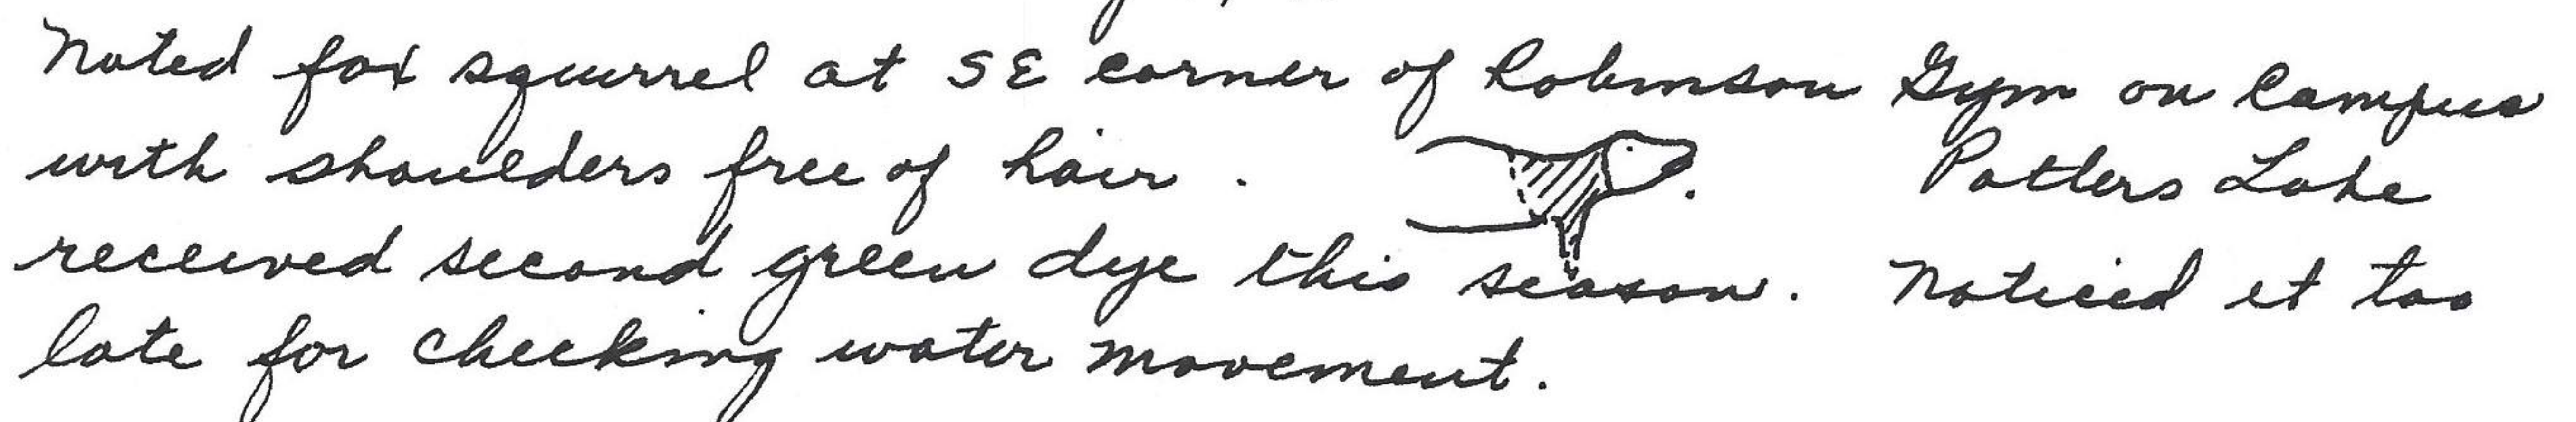 Noted fox squirrel at SE corner of Robinson Gym on Campus
with shoulders free of hair . Potters Lake
received second green dye this season. Noticed it too
late for checking water movement.